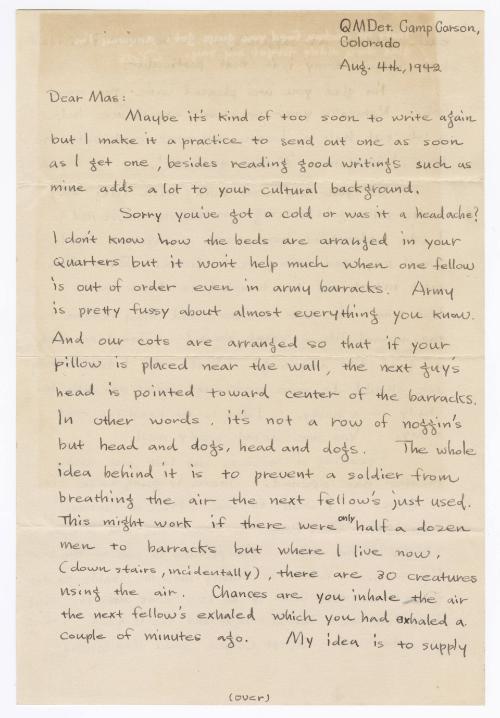 QMDet. Camp Carson,
Colorado
Aug. 4th, 1942
Dear Mas:
Maybe it's kind of too soon to write again
but I make it a practice to send out one as soon
as I get one, besides reading good writings such as
mine adds a lot to your cultural background.
Sorry you've got a cold or was it a headache?
I don't know how the beds are arranged in your
Quarters but it won't help much when one fellow
is out of order even in army barracks. Army
is pretty fussy about almost everything you know.
And our cots are arranged so that if your
pillow is placed near the wall, the next guy's
head is pointed toward center of the barracks.
In other words, it's not a row of noggin's
but head and dogs, head and dogs. The whole
idea behind it is to prevent a soldier from
breathing the air the next fellow's just used.
This might work if there were only half a dozen
men to barracks but where I live now,
(down stairs, incidentally), there are 30 creatures
using the air. Chances are you inhale the air
the next fellow's exhaled which you had exhaled a
couple of minutes ago. My idea is to supply
(over)